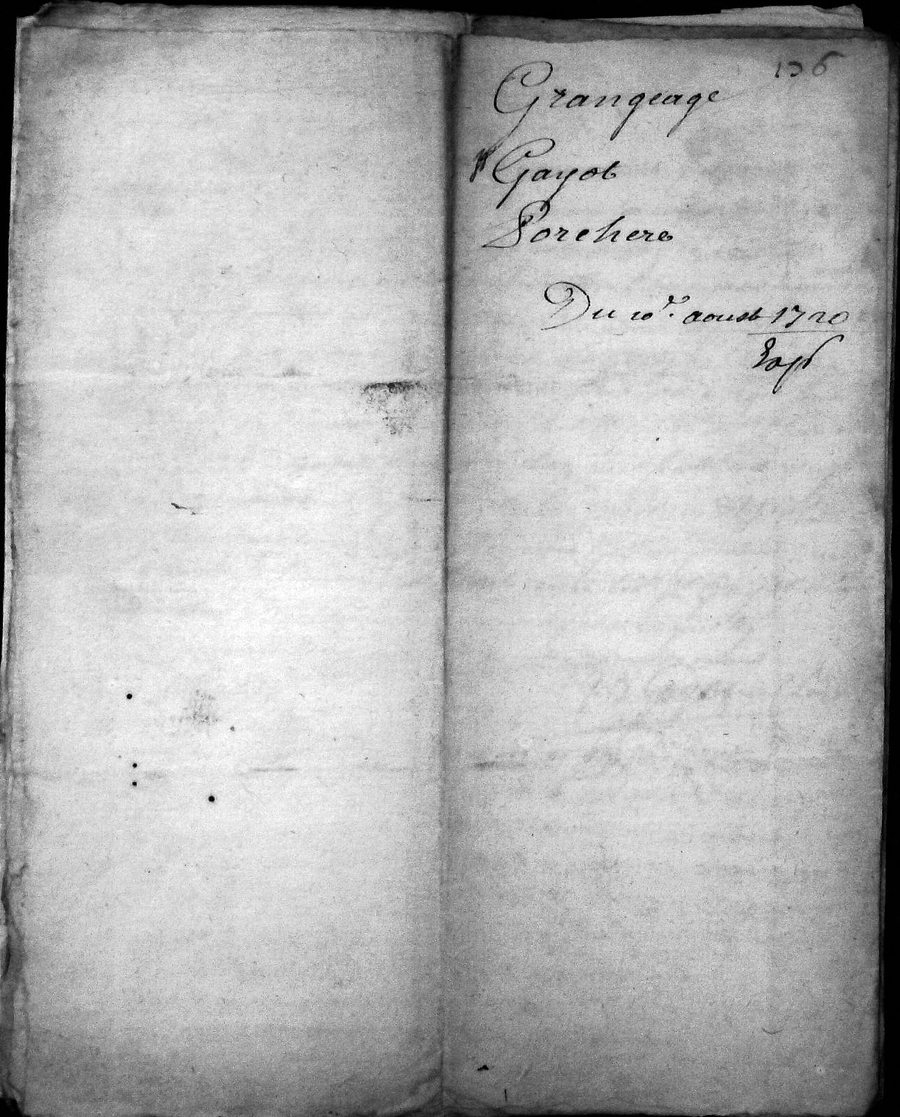 136
Grangeage
Gayot
Porchere
Du 10e. aoust 1720
Exp